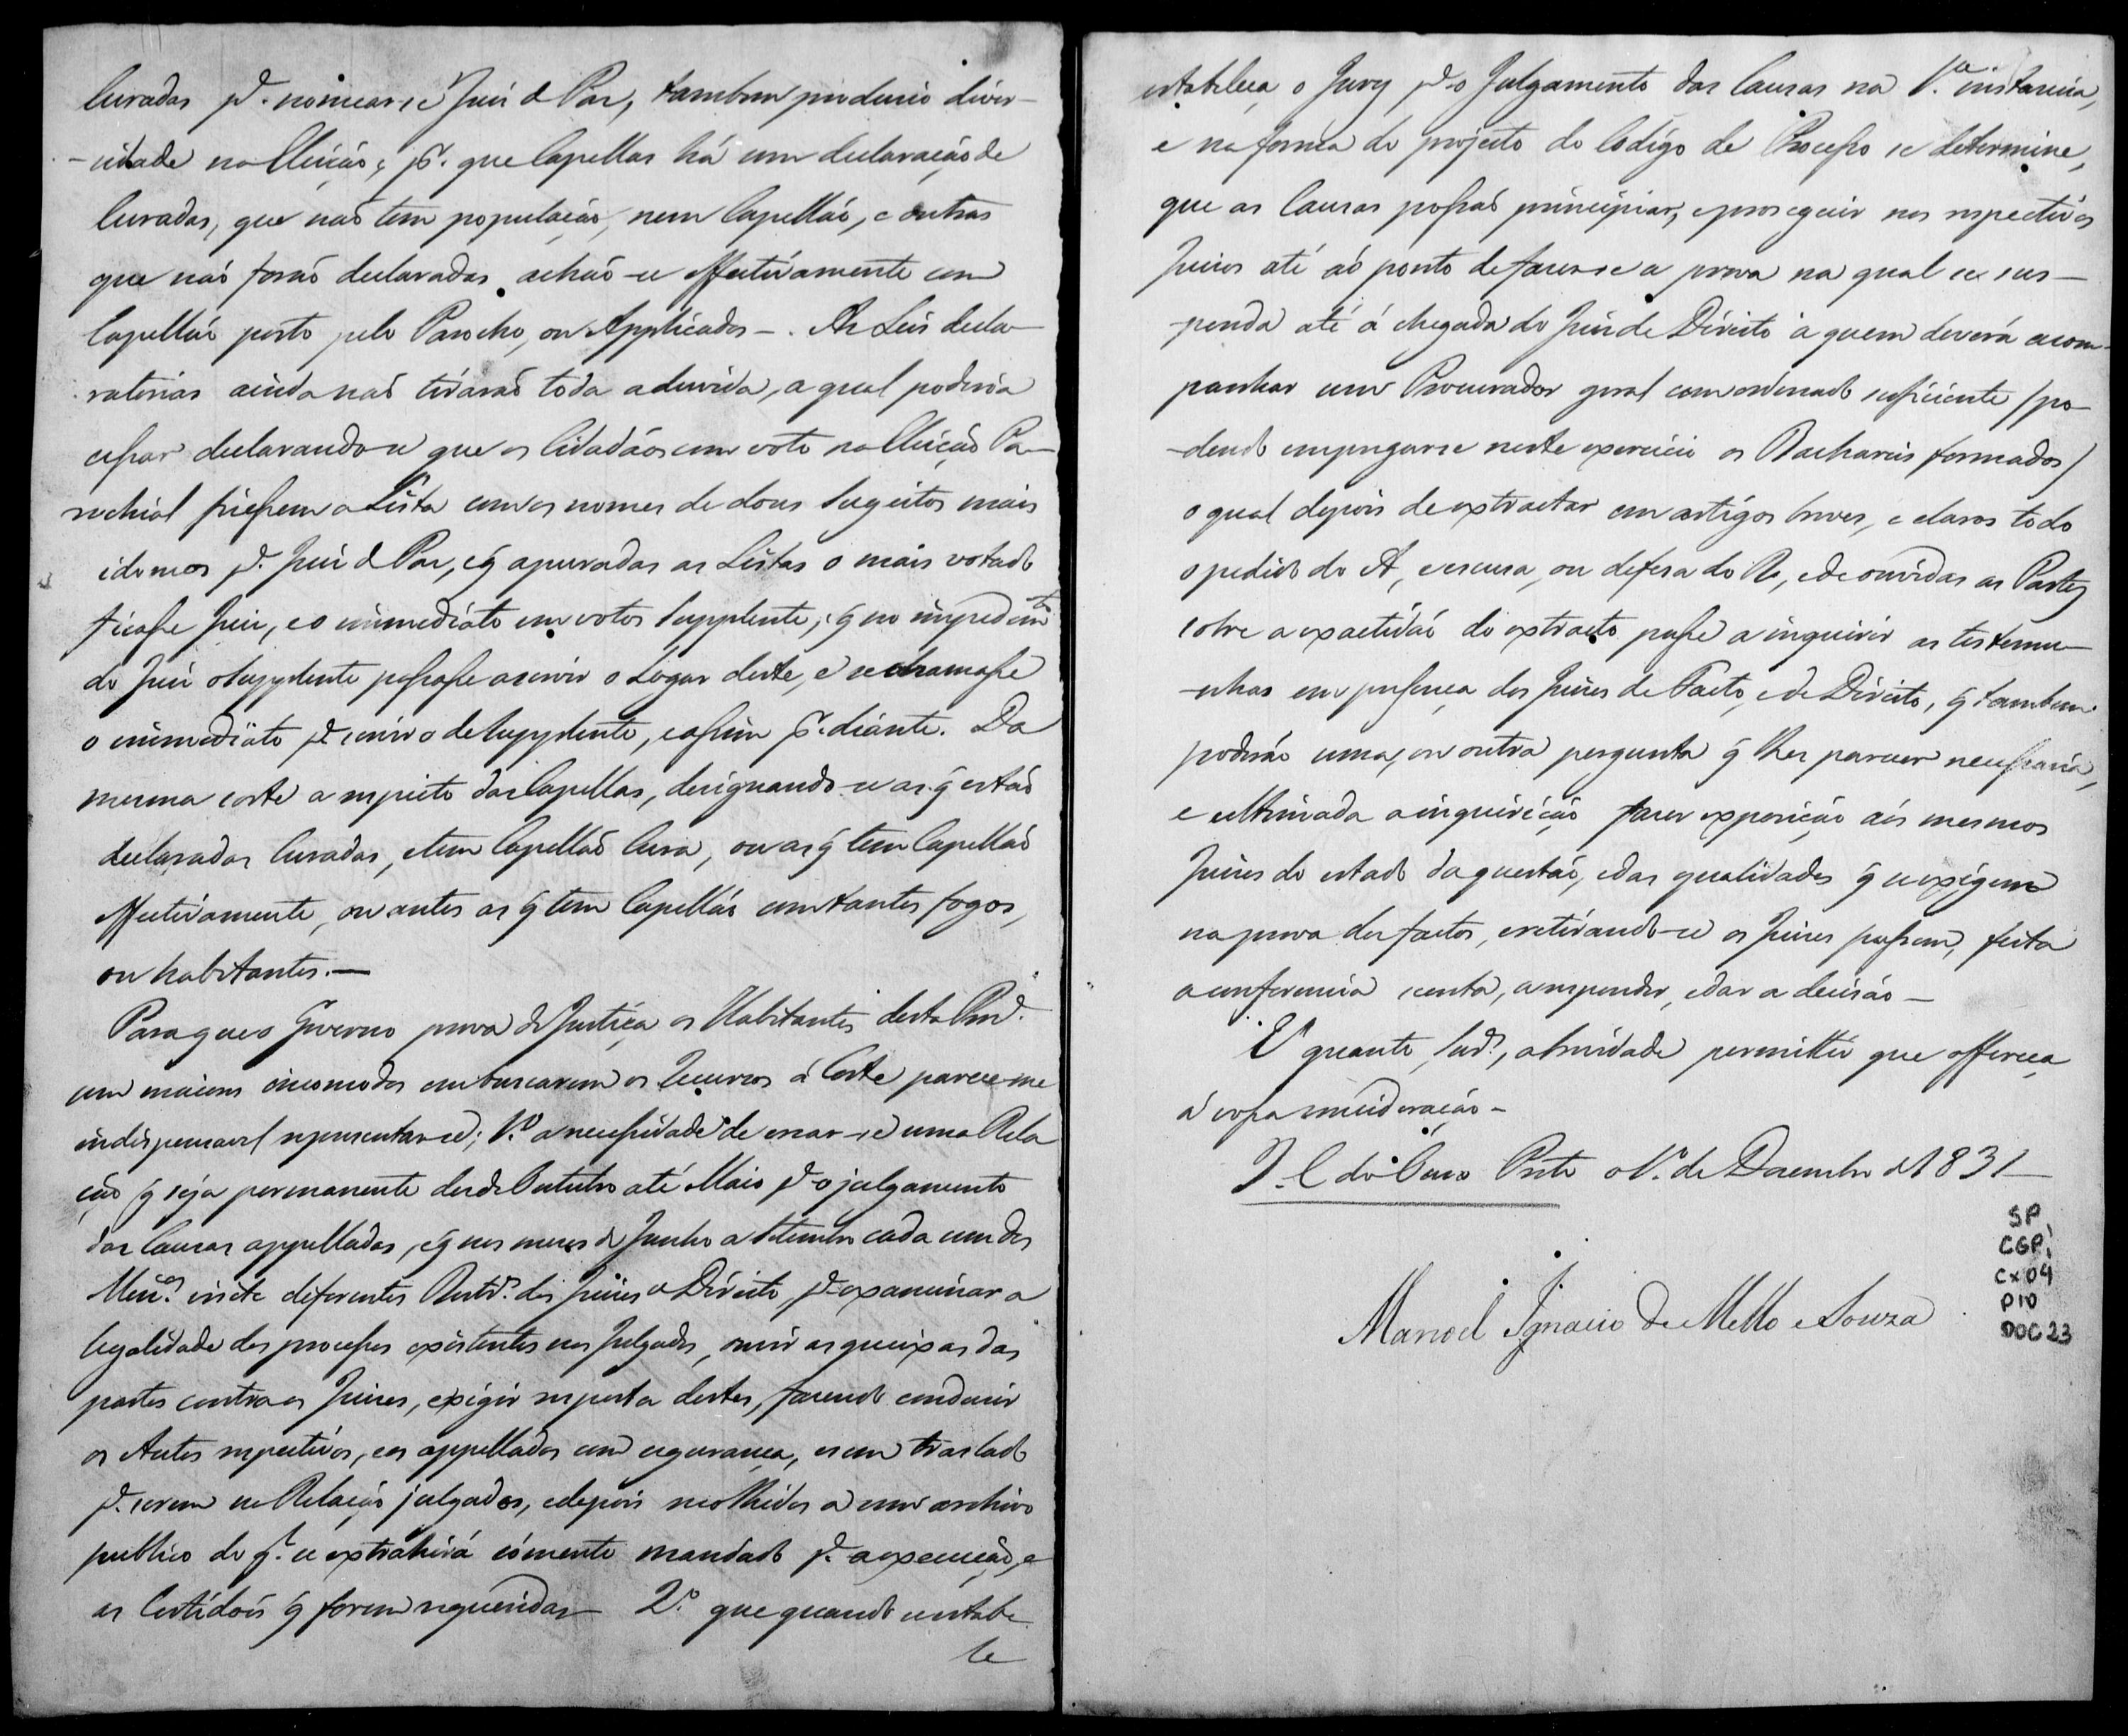 Curadas pª. nomear-se Juiz de Paz, tambem produzio diver-
-cidade na Eleição, pr. que Capellas há com declaração de
Curadas, que naõ tem população, nem Capellaõ, e outras
que naõ foraõ declaradas, achaõ-se effectivamente com
Capellaõ posto pelo Parocho, ou Applicados -. As Leis decla-
ratorias ainda naõ tiraraõ toda a duvida, a qual poderia
cessar declarando-se que os Cidadãos com voto na Eleição Pa-
rochial fisessem a Lista com os nomes de dous Sugeitos mais
idoneos pª. Juiz de Paz, e q̃ apuradas as Listas o mais votado
ficasse Juiz, e o immediato em votos Supplente, e q̃ no impedimto
do Juiz o Supplente passasse a servir o Logar deste, e se chamasse
o immediato pª servir o de Supplente, e assim pr. diante. Da
mesma sorte a respeito das Capellas, designando-se as q̃ estaõ
declaradas Curadas, e tem Capellaõ Cura, ou as q̃ tem Capellaõ
effectivamente, ou antes as q̃ tem Capellaõ com tantos fogos,
ou habitantes.—
Para que o Governo prova de Justiça os Habitantes desta Prov.ª
sem maiores incomodos em buscarem os Recursos á Corte parece-me
indispensavel representar-se; 1.º a necessidade de crear-se uma Rela
ção q̃ seja permanente desde Outubro até Maio pª o julgamento
das Causas appelladas, e q̃ nos meses de Junho a Setembro cada um dos
Men.os visite diferentes Destr.os dos Juizes de Direito, pª examinar a
legalidade dos processos existentes nos Julgados, ouvir as queixas das
partes contra os Juizes, exigir resposta destes, fazendo condusir
os Autos respectivos, e os appellados com segurança, e sem traslado
pª. serem na Relação julgados, e depois recolhidos a um archivo
publico do ql. se extrahirá sómente mandado pª. a execução, e
as Certidoẽs q̃ forem requeridas — 2.º que quando se estabe
le
estabeleça o Jury pª o Julgamento das Causas na 1.ª instancia,
e na forma do projecto do Codigo de Processo se determine,
que as Causas possaõ principiar, e proseguir nos respectivos
Juizos até ao ponto de fazer-se a prova na qual se sus-
-penda até á chegada do Juiz de Direito a quem deverá acom-
panhar um Procurador geral com ordenado suficiente (po-
-dendo empregar-se neste exercicio os Bachareis formados)
o qual depois de extractar em artigos breves, e claros todo
o pedido do A, e escusa, ou defesa do Re, e de ouvidas as Partes
sobre a exactidaõ do extracto passe a inquirir as testemu-
-nhas em presença dos Juizes de Facto, e de Direito, q̃ tambem
poderão uma, ou outra pergunta q̃ lhes parecer necessaria,
e ultimada a inquirição fazer exposição aos mesmos
Juizes do estado da questaõ, e das qualidades q̃ se exigem
na prova dos factos, e retirando-se os Juizes possem, feita
a conferencia secreta, a responder, e dar a decisão —
E' quanto, a brevidade permittio que offereça
á vossa consideração —
I. C. do Ouro Preto o 1.º de Dezembro de 1831 —
Manoel Ignacio de Mello e Souza
SP,
CGP,
Cx 04
P10
DOC 23